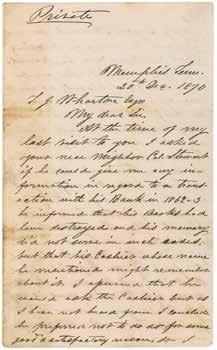 Private
Memphis Tenn.
20th Dec. 1870
T. J. Wharton Esq
My dear Sir,
At the time of my
last visit to you I asked
your near Neighbor Col. Stewart
if he could give me any in-
formation in regard to a trans-
action with his Bank in 1862-3
he informed that his Books had
been destroyed and his memory
did not serve in such cases.
but that his Cashier whose name
he mentioned might remember
about it. I assumed that he
would ask the Cashier but as
I have not heard from I conclude
he preferred not to do so for some
good & satisfactory reason, so I